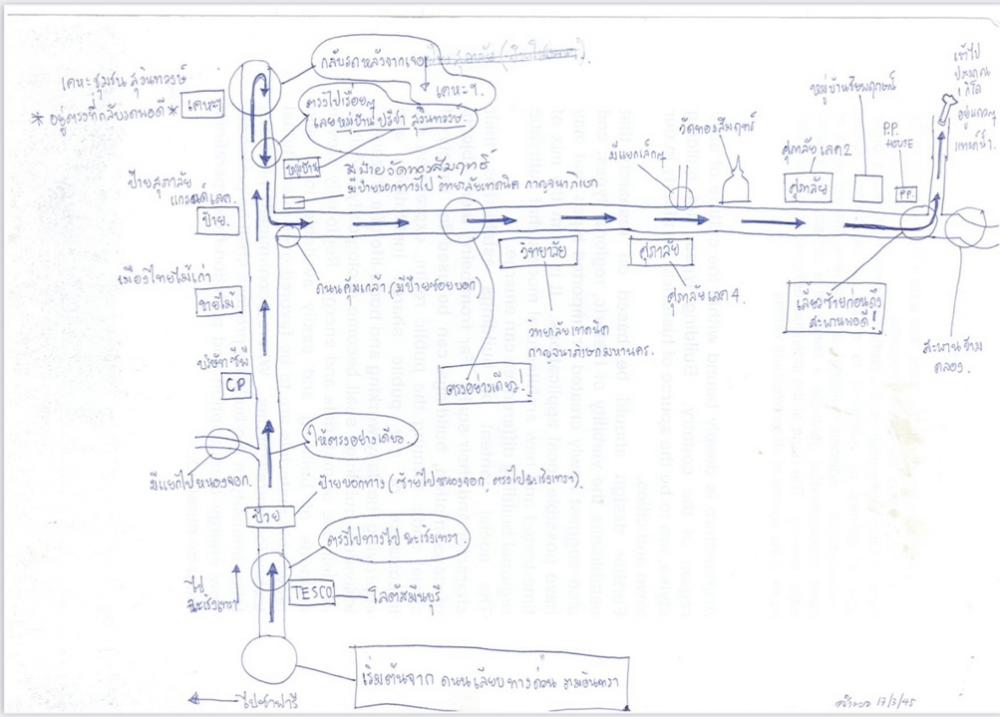 กลับรถหลังจากเจอ
เคหะฯ.
เคหะชุมชน สุวินทวงษ์
* อยู่ตรงที่กลับรถพอดี *
เคหะฯ
ตรงไปเรื่อยๆ
เลยหมู่บ้าน ปรีชา สุวินทวงษ์.
หมู่บ้าน
มีป้ายวัดทองสัมฤทธิ์
มีป้ายบอกทางไป วิทยาลัยเทคนิค กาญจนาภิเษก
ป้ายศุภาลัย
แกรนด์เลค.
ป้าย.
มีแยกเล็กๆ
วัดทองสัมฤทธิ์
ศุภาลัยเลค 2
ศุภาลัย
หมู่บ้านชัยพฤกษ์
P.P.
HOUSE
P.P.
เข้าไป
ประมาณ
1 กิโล
เมืองไทยไม้เก่า
ขายไม้
ถนนคุ้มเกล้า (มีป้ายซอยบอก)
วิทยาลัย
วิทยาลัยเทคนิค
กาญจนาภิเษกมหานคร.
ศุภาลัย
ศุภาลัยเลค 4.
เลี้ยวซ้ายก่อนถึง
สะพานพอดี!
สะพานข้าม
คลอง.
บริษัทซีพี
CP
ตรงอย่างเดียว!
ให้ตรงอย่างเดียว.
มีแยกไปหนองจอก.
ป้ายบอกทาง (ซ้ายไปหนองจอก, ตรงไปฉะเชิงเทรา).
ป้าย
ตรงไปทางไป ฉะเชิงเทรา.
ไป
ฉะเชิงเทรา
TESCO
โลตัสมีนบุรี
เริ่มต้นจาก ถนนเลียบทางด่วน รามอินทรา
ไปซาฟารี
17/3/45